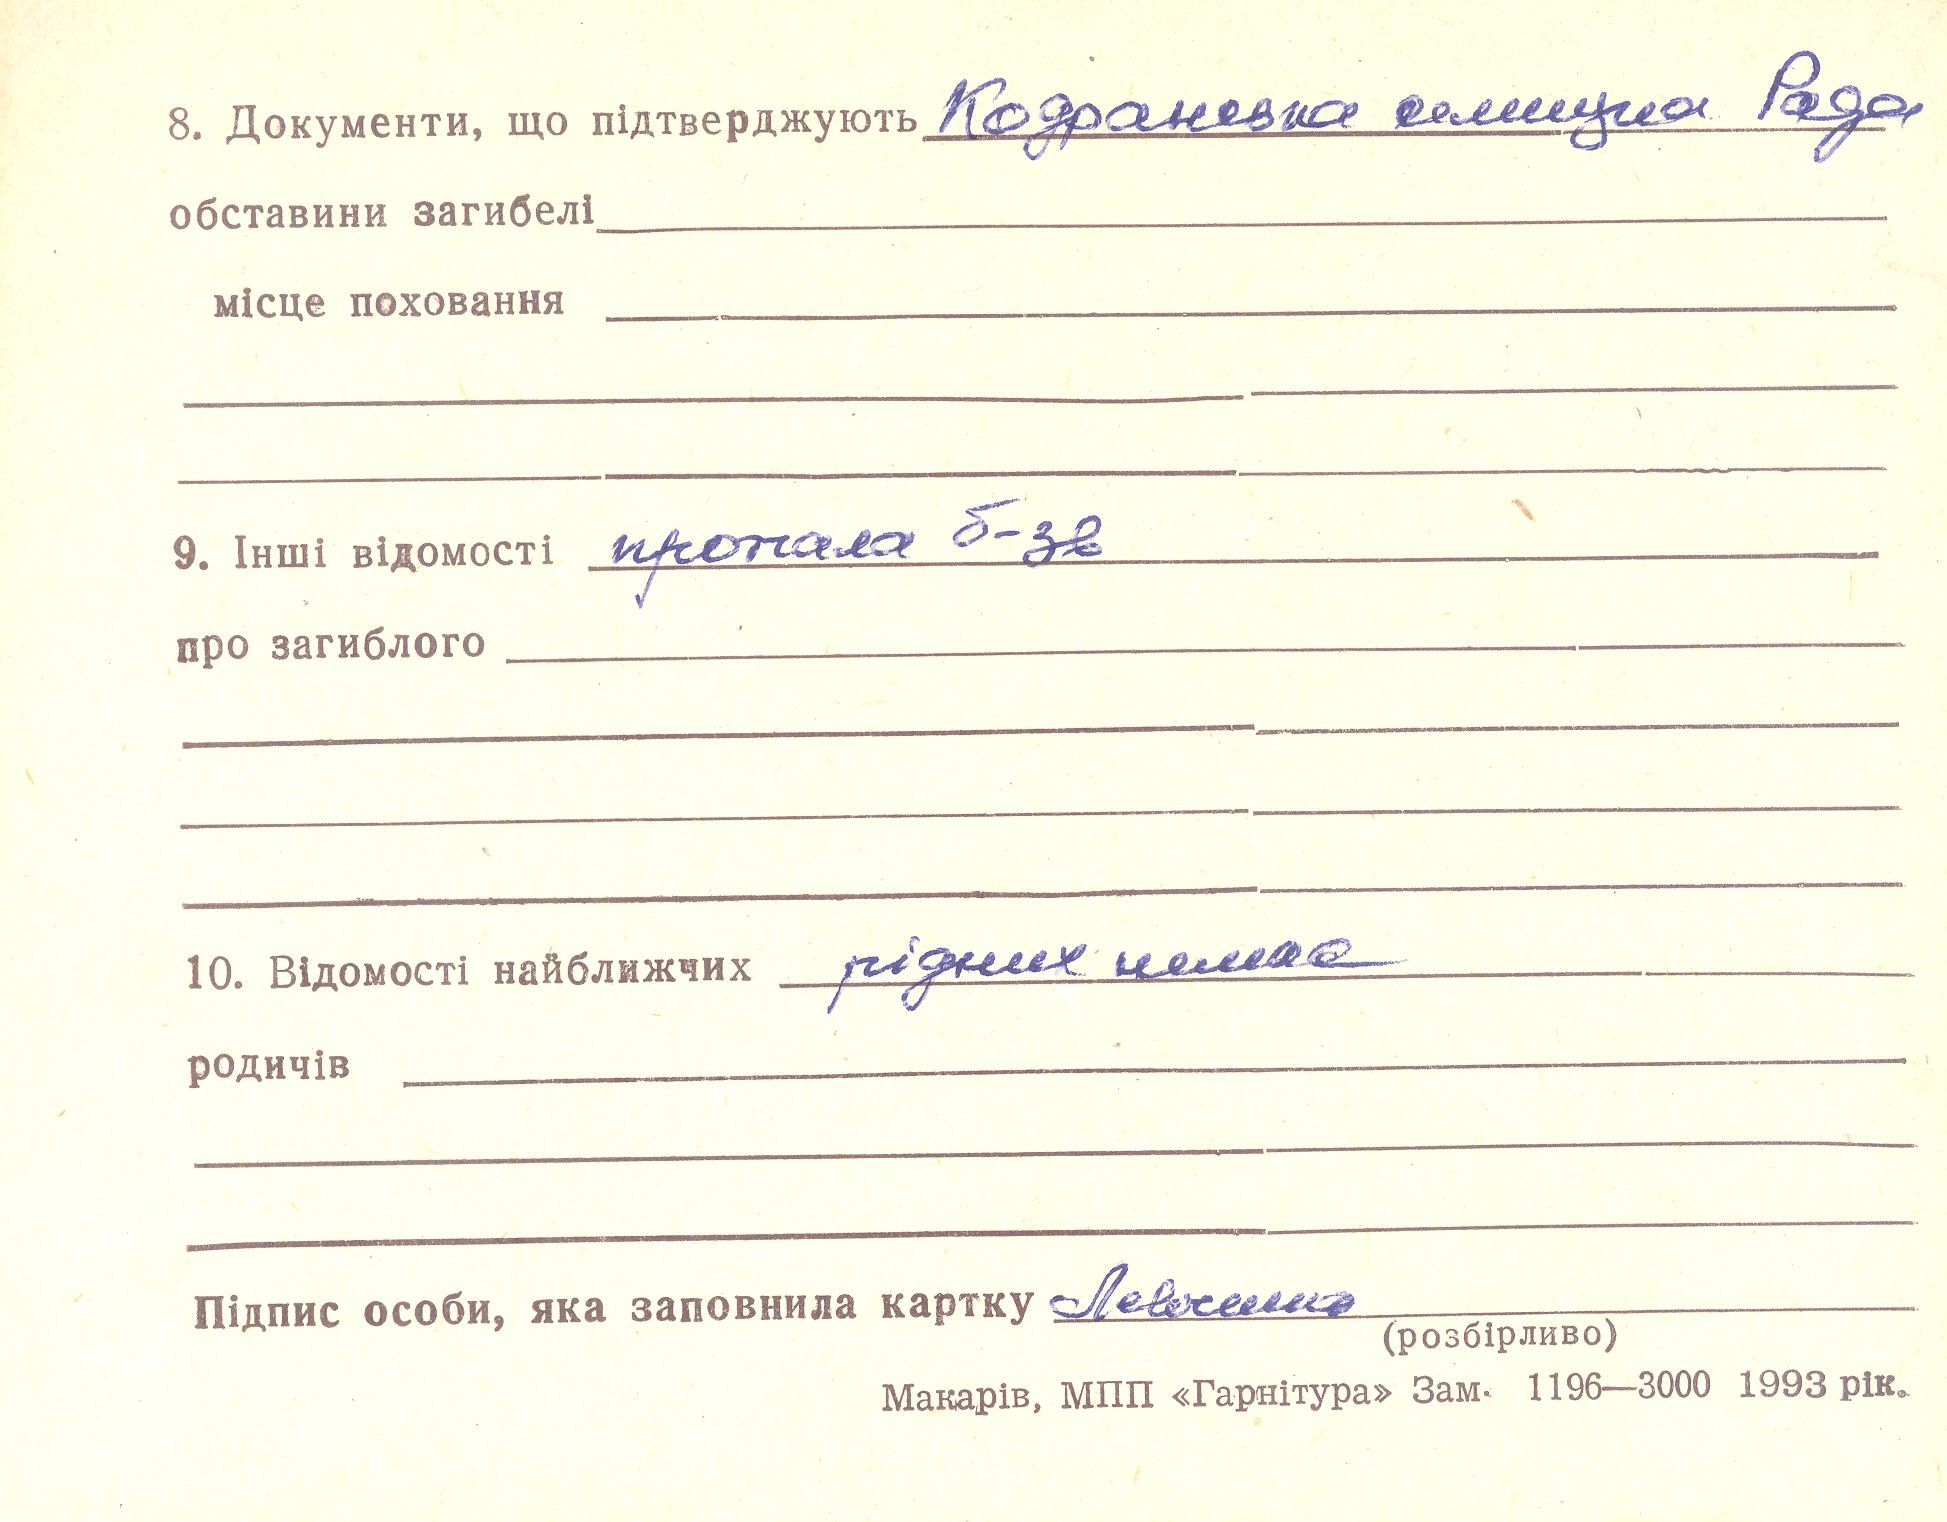 8. Документи, що підтверджують Кодранська селищна Рада
обставини загибелі
місце поховання
9. Інші відомості пропала б-зв
про загиблого
10. Відомості найближчих рідних немає
родичів
Підпис особи, яка заповнила картку
(розбірливо)
Макарів, МПП «Гарнітура» Зам. 1196—3000 1993 рік.